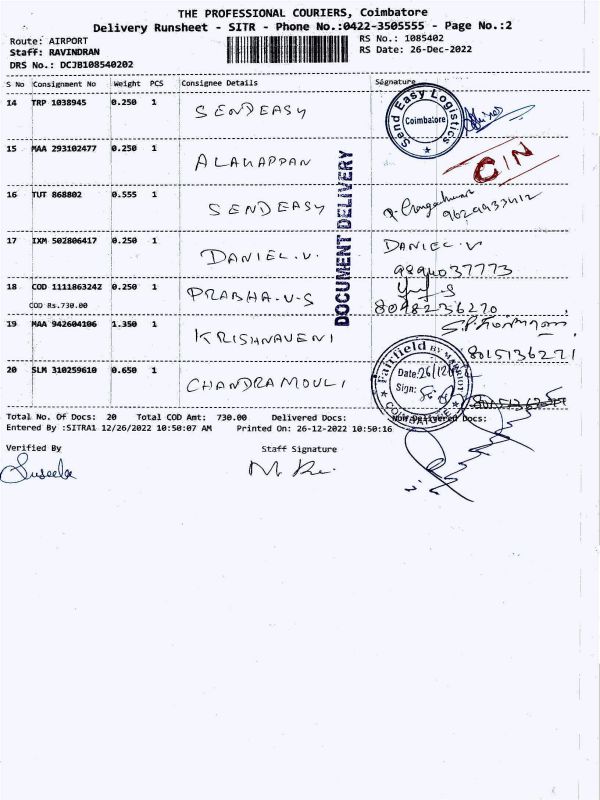 THE PROFESSIONAL COURIERS, Coimbatore
Delivery Runsheet - SITR - Phone No.:0422-3505555 - Page No.:2
Route: AIRPORT RS No.: 1085402
Staff: RAVINDRAN RS Date: 26-Dec-2022
DRS No.: DCJB108540202
S No Consignment No Weight PCS Consignee Details Signature
14 TRP 1038945 0.250 1 SENDEASY
Send Easy Logistics
Coimbatore
15 MAA 293102477 0.250 1 ALAHAPPAN C/N
16 TUT 868802 0.555 1 SENDEASY
9629933412
17 IXM 502806417 0.250 1 DANIEL.V. DANIEL.V
9894037773
18 COD 1111863242 0.250 1 PRABHA.V-S
COD Rs.730.00 8048236270
19 MAA 942604106 1.350 1 KRISHNAVENI
8015136271
20 SLM 310259610 0.650 1 CHANDRAMOULI
Fairfield BY MARRIOT
Date: 26/12/
Sign:
COIMBATORE
DOCUMENT DELIVERY
Total No. Of Docs: 20 Total COD Amt: 730.00 Delivered Docs: Non Delivered Docs:
Entered By :SITRA1 12/26/2022 10:50:07 AM Printed On: 26-12-2022 10:50:16
Verified By Staff Signature
Suseela